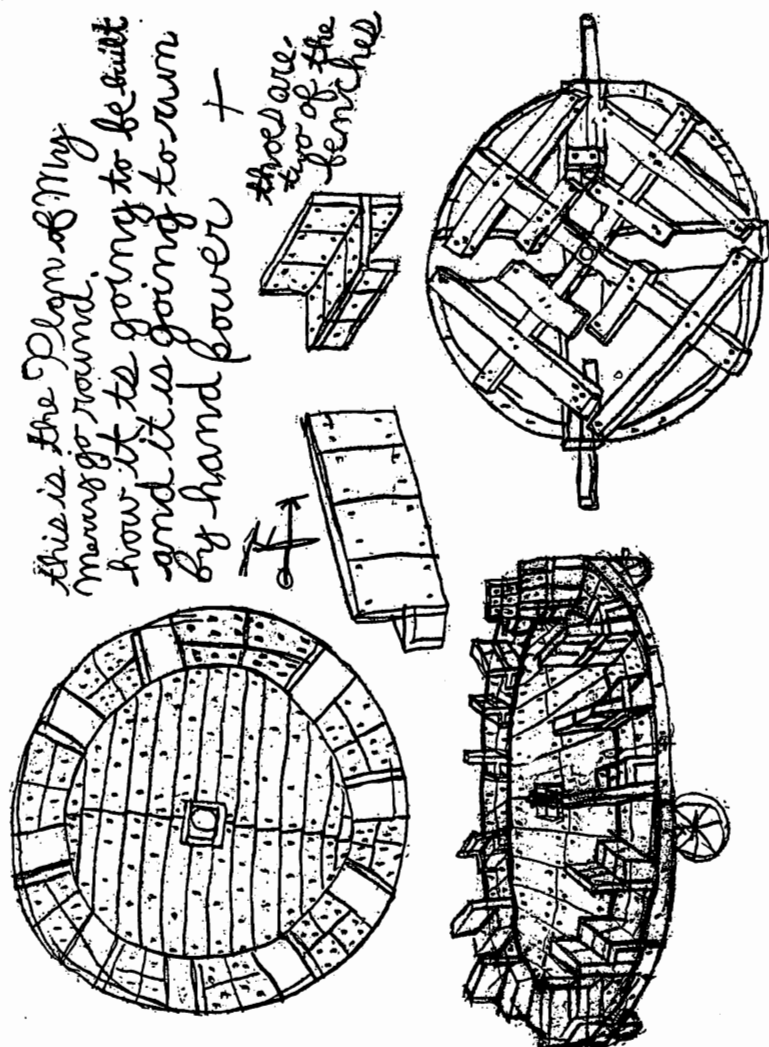 this is the Plan of My
merry go round.
how it is going to be built
and it is going to run
by hand power +
thoes are.
two of the
benches